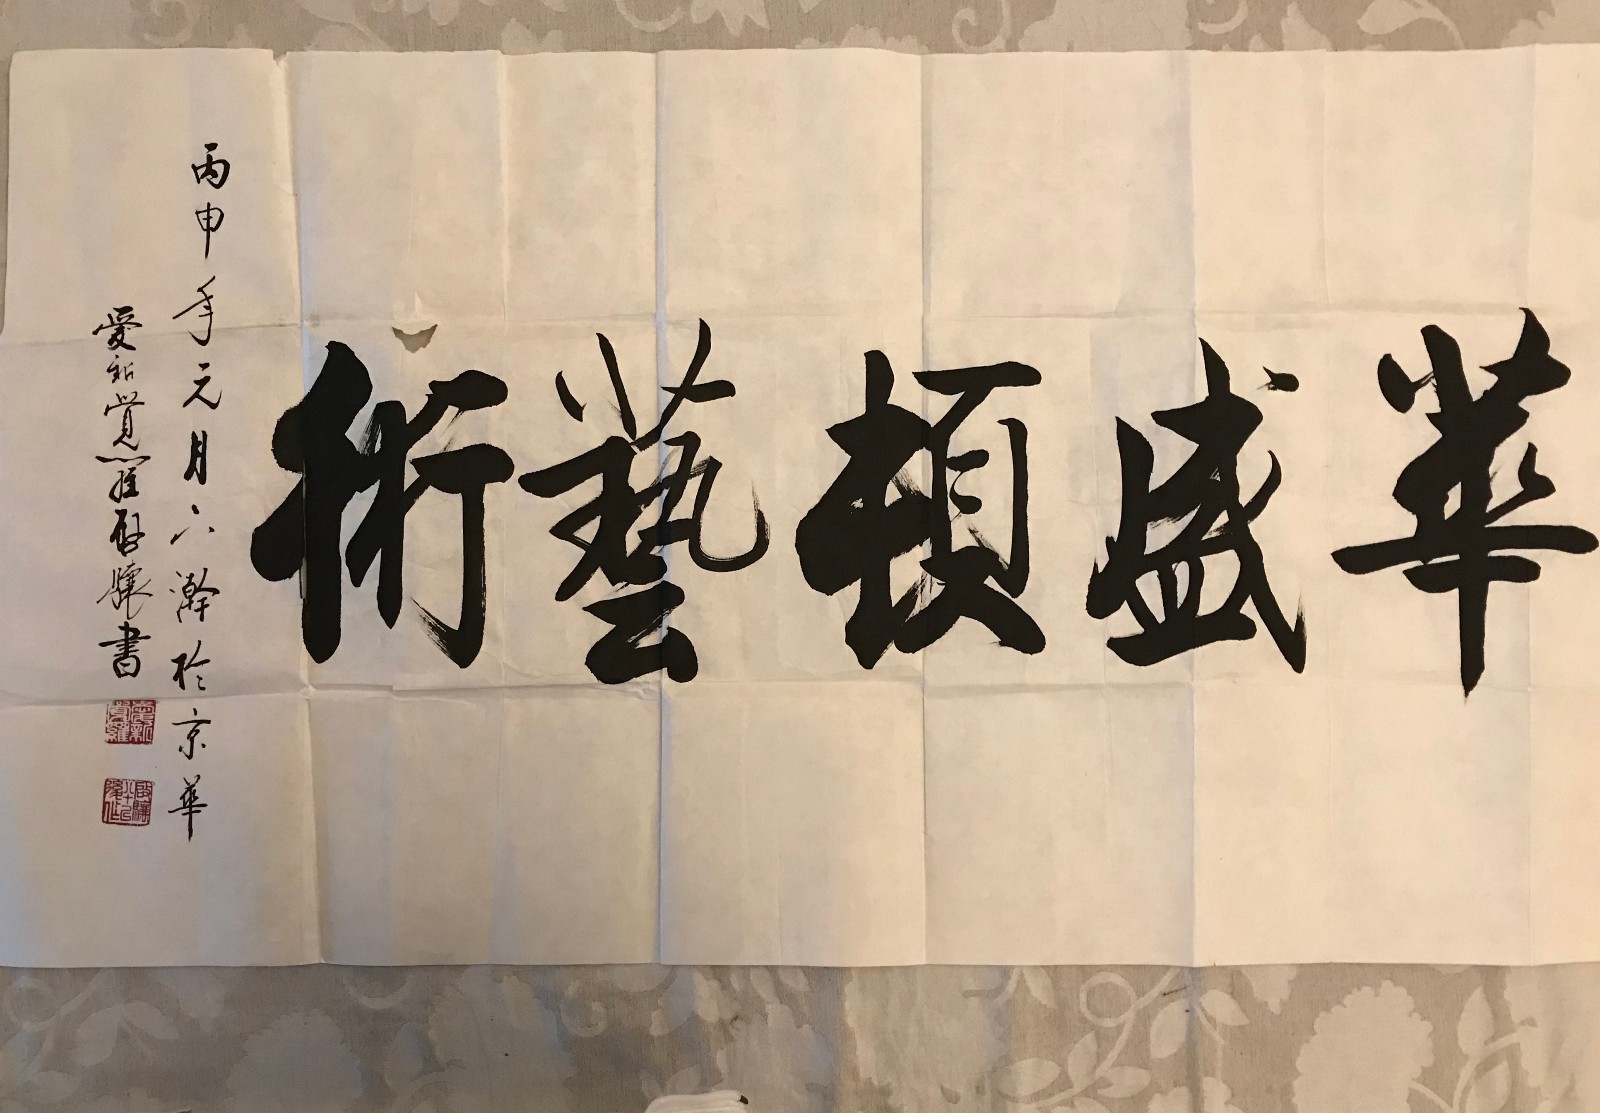 華盛頓藝術
丙申年元月六瀚於京華
愛新覺羅啟驤書
愛新覺羅